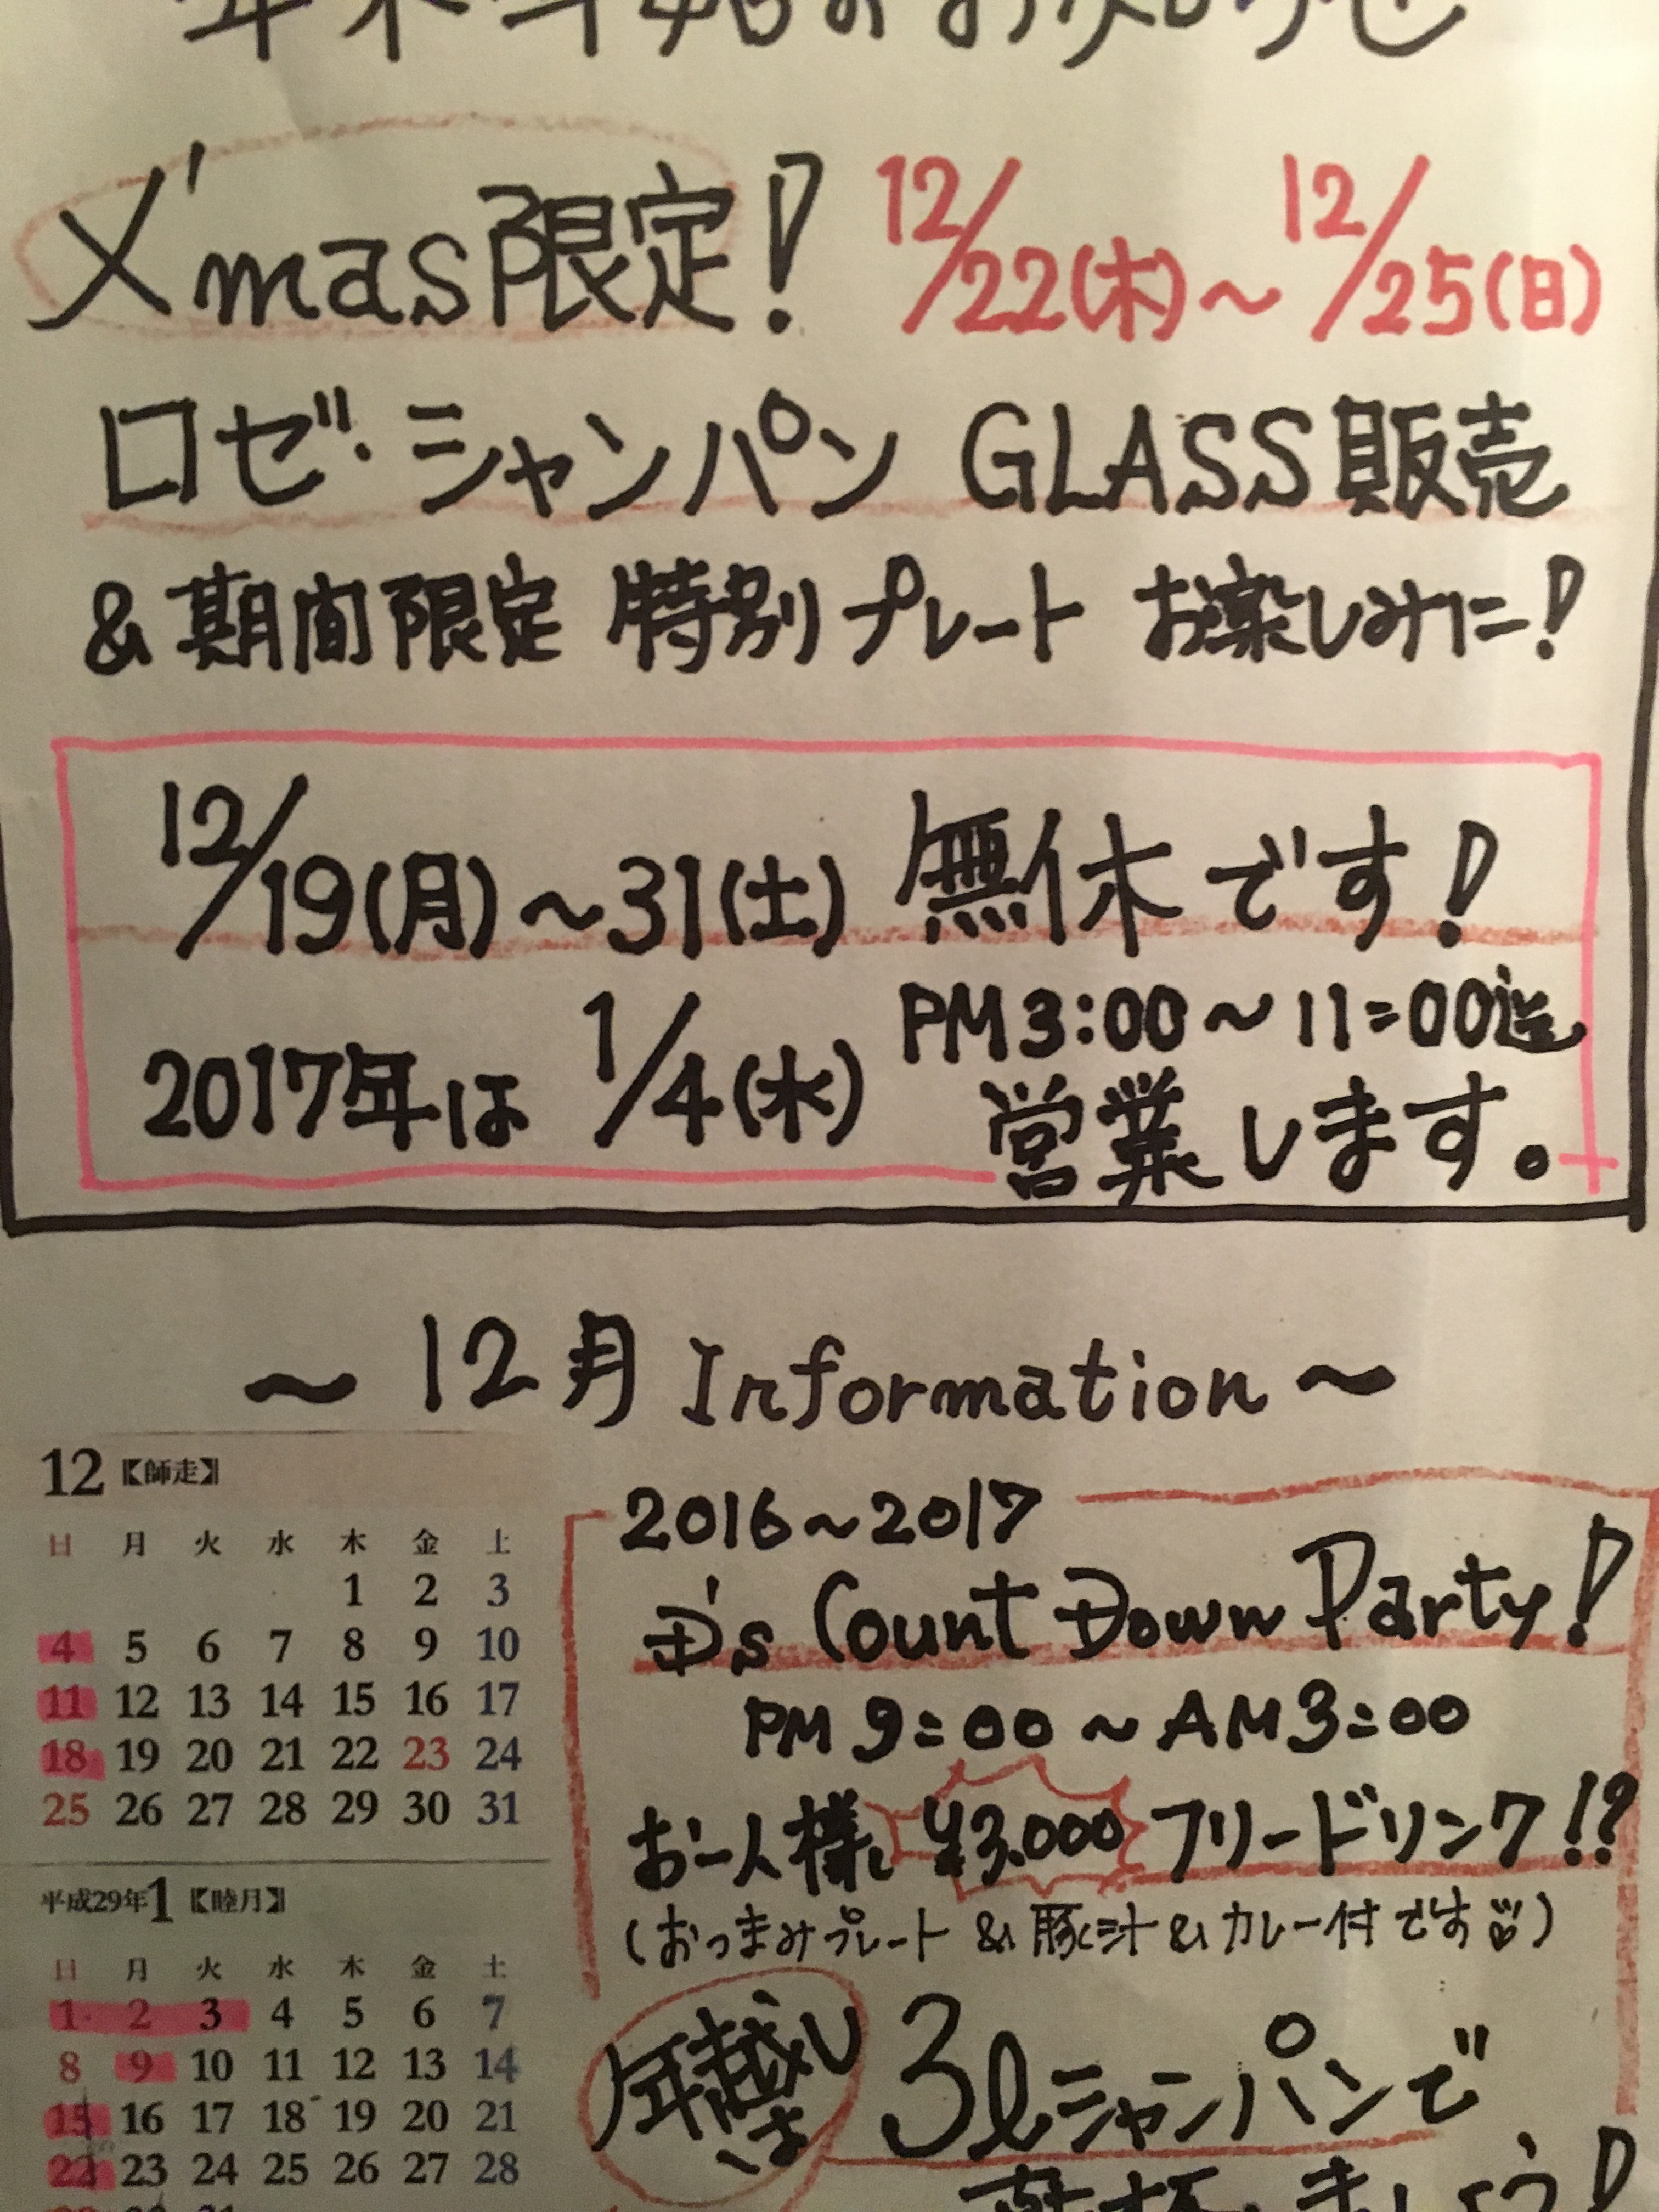 年末年始のお知らせ
X'mas限定! 12/22(木)~12/25(日)
ロゼ・シャンパン GLASS販売
&期間限定 特別プレート お楽しみに!
12/19(月)~31(土) 無休です!
2017年は 1/4(水) PM3:00~11:00迄
営業します。
~12月 Information~
12【師走】
日 月 火 水 木 金 土
1 2 3
4 5 6 7 8 9 10
11 12 13 14 15 16 17
18 19 20 21 22 23 24
25 26 27 28 29 30 31
平成29年1【睦月】
日 月 火 水 木 金 土
1 2 3 4 5 6 7
8 9 10 11 12 13 14
15 16 17 18 19 20 21
22 23 24 25 26 27 28
2016~2017
D's Count Down Party!
PM 9:00~AM3:00
お一人様 ¥3.000 フリードリンク!?
(おつまみプレート &豚汁&カレー付です)
年越しは 3lシャンパンで
乾杯しましょう!